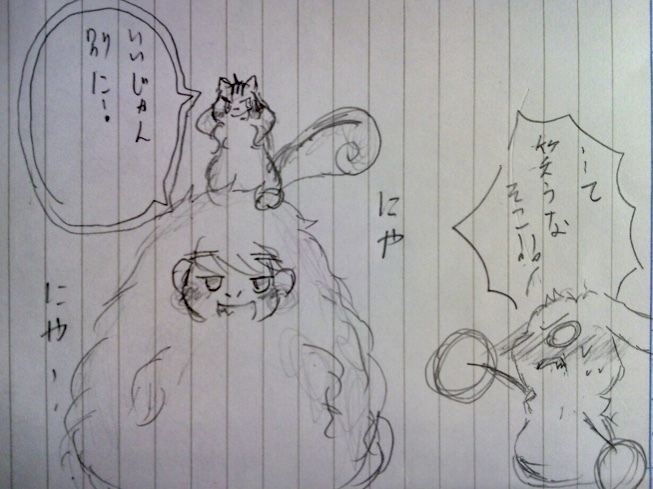 ーて
笑うな
そこ!!
にや
いいじゃん
別に!
にや